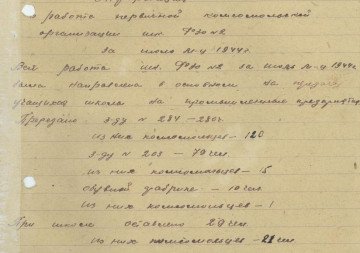 работы первичной комсомольской
организации шк. ФЗО №2
за июль м-ц 1944 г.
Вся работа шк. ФЗО №2 за июль м-ц 1944
была направлена в основном на
учащихся школы на промышленные предприятия
Передано з-ду № 284 – 280 г.
из них комсомольцев – 120
з-ду № 203 – 70 чел.
из них комсомольцев – 15
обувной фабрике – 10 чел.
из них комсомольцев – 1
При школе оставлено 29 чел.
из них комсомольцев – 21 чел.